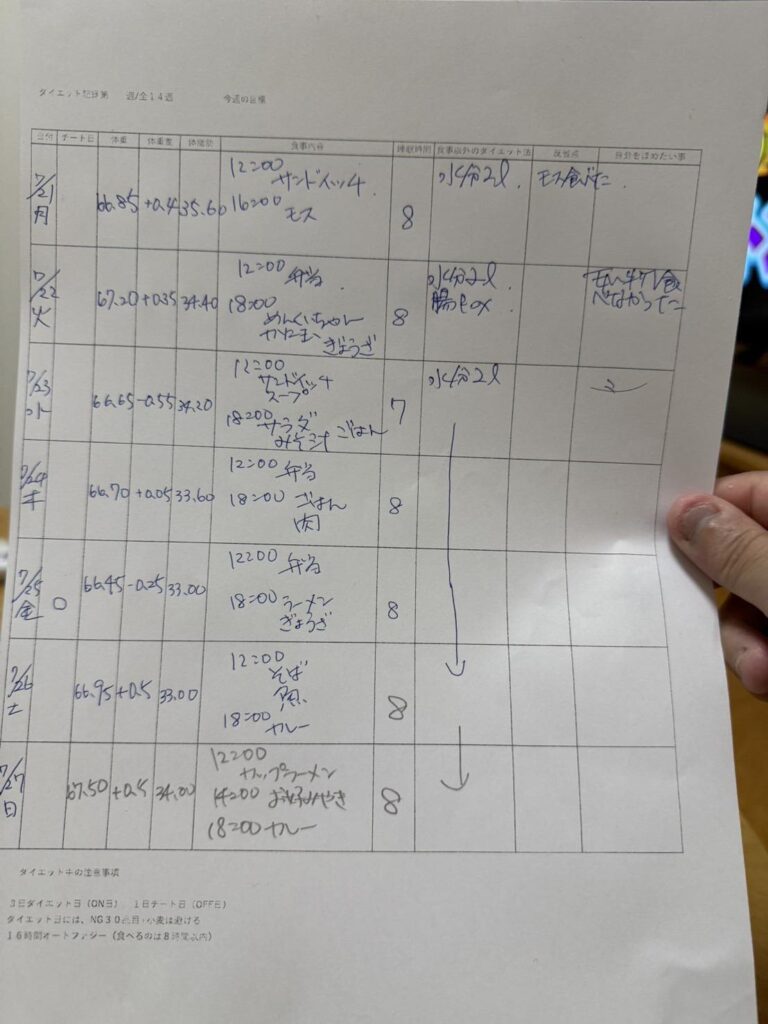 ダイエット記録第　週/全14週　今週の目標
日付 チート日 体重 体重差 体脂肪 食事内容 睡眠時間 食事以外のダイエット法 反省点 自分をほめたい事
7/21 月 66.85 +0.4 35.60 8 水分2l. モス食べた.
12:00
サンドイッチ.
16:00 モス
7/22 火 67.20 +0.35 34.40 8
12:00 弁当
18:00
ぎょうざ
水分2l
食
べなかった
7/23 水 66.65 -0.55 34.20 7 水分2l
12:00
サンドイッチ
スープ
18:00 サラダ ごはん
みそ汁
7/24 木 66.70 +0.05 33.60 8
12:00 弁当
18:00 ごはん
肉
7/25 金 ○ 66.45 -0.25 33.00 8
12:00 弁当
18:00 ラーメン
ぎょうざ
7/26 土 66.95 +0.5 33.00 8
12:00
そば
魚
18:00 カレー
7/27 日 67.50 +0.5 34.00 8
12:00
カップラーメン
14:00 お好みやき
18:00 カレー
ダイエット中の注意事項
3日ダイエット日（ON日）、1日チート日（OFF日）
ダイエット日には、NG30品目・小麦は避ける
16時間オートファジー（食べるのは8時間以内）